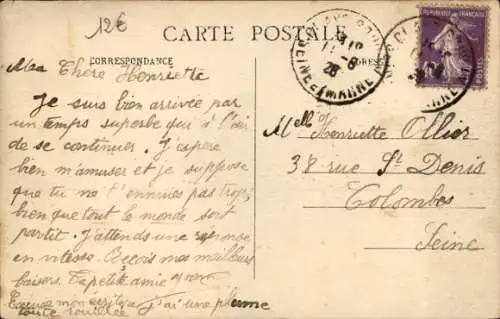 12€
CARTE POSTALE
CORRESPONDANCE
Ma Chere Henriette
Je suis bien arrivée par
un temps superbe qui à l'air
de se continuer. J'espère
bien m'amuser et je suppose
que tu ne t'ennuies pas trop,
bien que tout le monde soit
partit. J'attends une réponse
en vitesse. Reçois mes meilleurs
baisers. Ta petite amie
Excuse mon écriture j'ai une plume
toute rouillée
SEINE & MARNE
11-8
26
REPUBLIQUE FRANÇAISE
POSTES
Melle Henriette Ollier
38 rue St Denis
Colombes
Seine